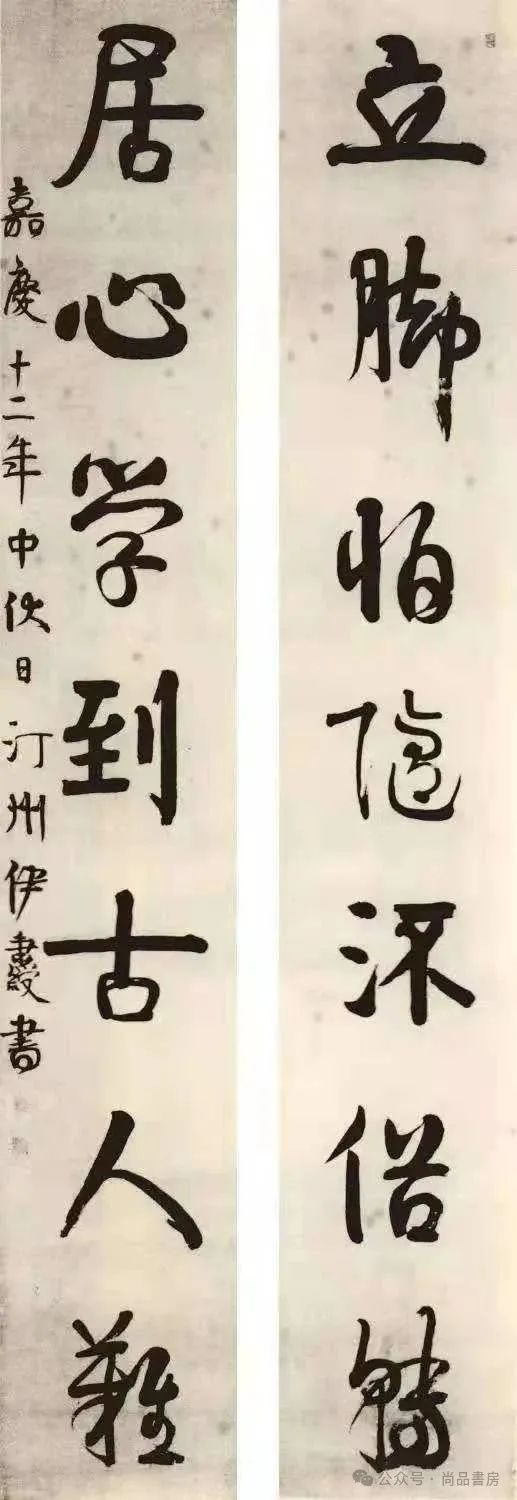 立脚怕隨流俗轉
居心学到古人難
嘉慶十二年中伏日汀州伊秉綬書
公众号 · 尚品書房